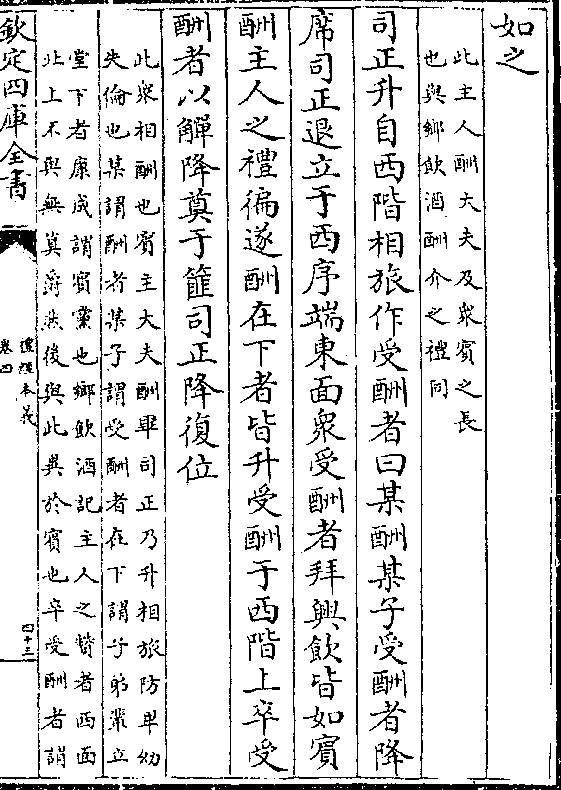 如之
此主人酬大夫及衆賓之長
也與鄉飲酒酬介之禮同
司正升自西階相旅作受酬者曰某酬某子受酬者降
席司正退立于西序端東面衆受酬者拜興飲皆如賓
酬主人之禮徧遂酬在下者皆升受酬于西階上卒受
酬者以觶降奠于篚司正降復位
此衆相酬也賓主大夫酬畢司正乃升相旅防卑幼
失倫也某謂酬者某子謂受酬者在下謂子弟輩立
堂下者康成謂賓黨也鄉飲酒記主人之贊者西面
北上不與無算爵然後與此異於賓也卒受酬者謂
欽定四庫全書
禮經本義
卷四
四十三